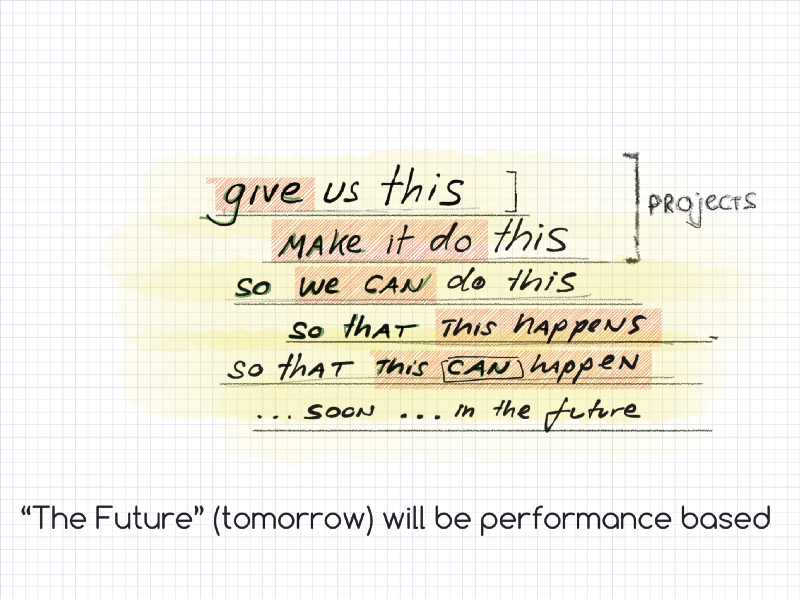 give us this
PROJECTS
MAKE it do this
so we CAN do this
so thAT This hAppENS
so thAT This CAN hAppEN
... SOON ... in the future
“The Future” (tomorrow) will be performance based